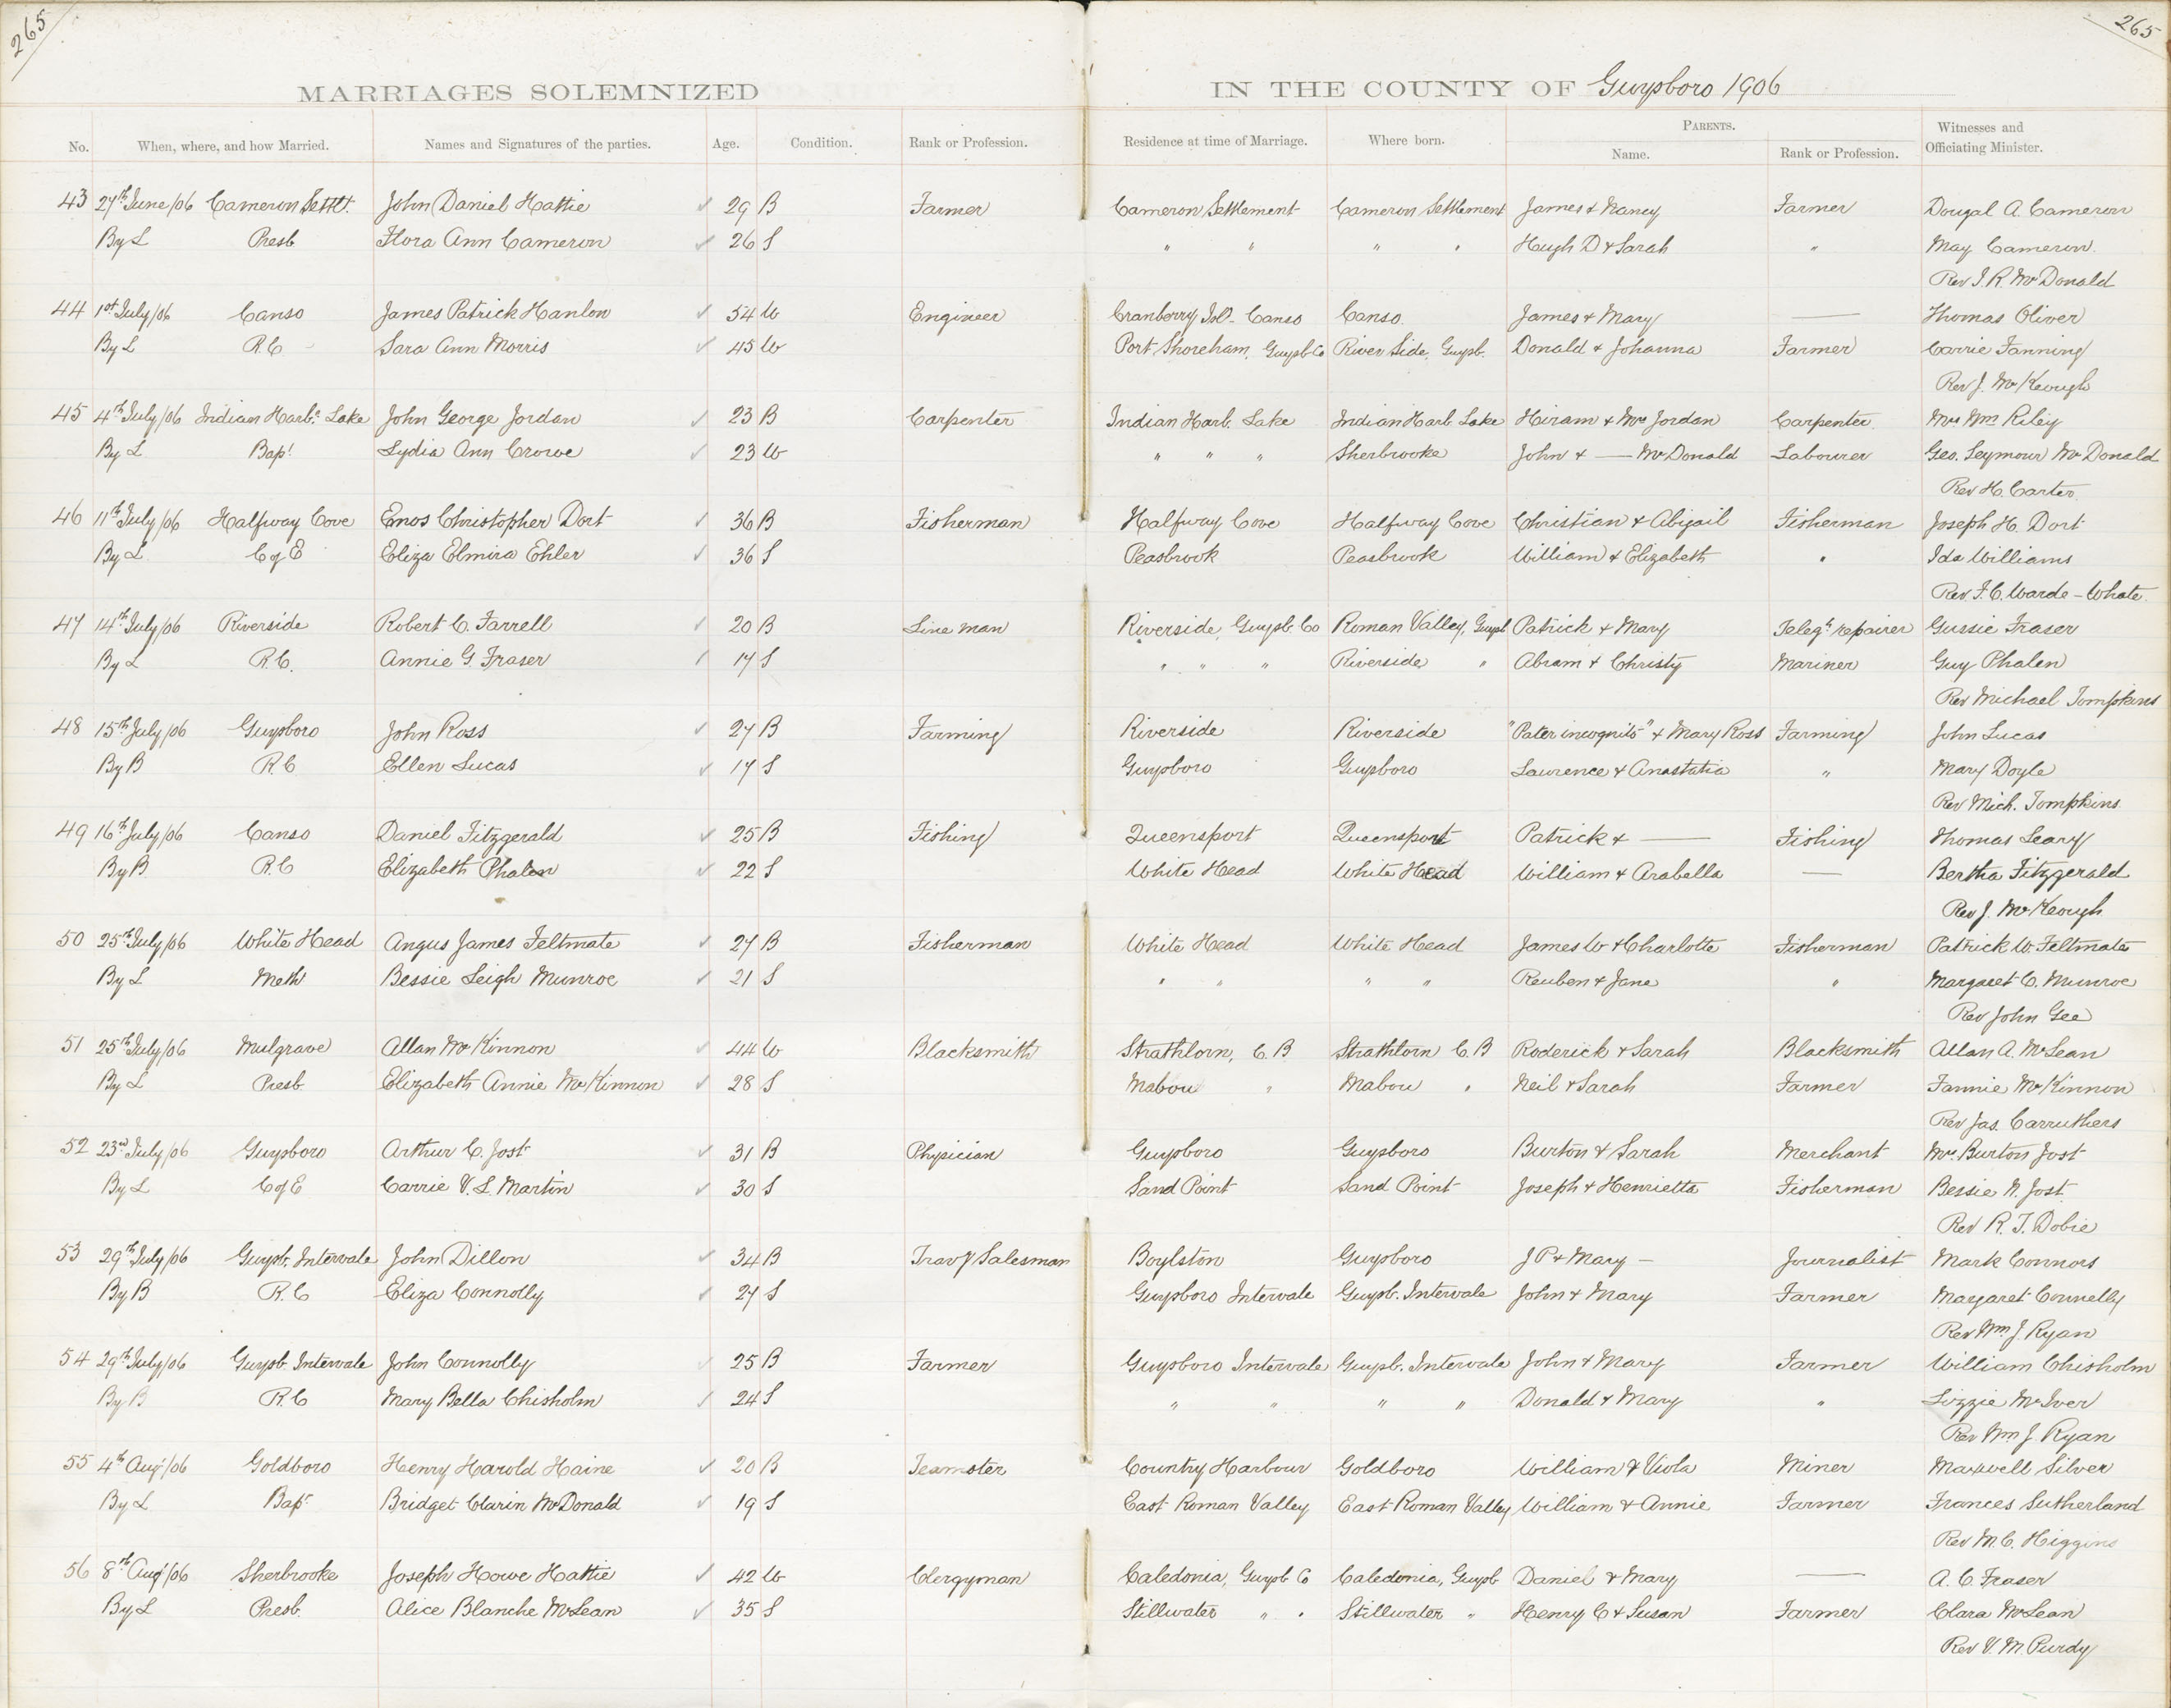 265 265
MARRIAGES SOLEMNIZED IN THE COUNTY OF Guysboro 1906
No. When, where, and how Married. Names and Signatures of the parties. Age. Condition. Rank or Profession. Residence at time of Marriage. Where born. PARENTS. Name. Rank or Profession. Witnesses and Officiating Minister.
43 27th June/06 Cameron Settlt. John Daniel Hattie ✓ 29 B Farmer Cameron Settlement Cameron Settlement James & Nancy Farmer Dougal A. Cameron
By L Presb Flora Ann Cameron ✓ 26 S " " " " Hugh D & Sarah " May Cameron
Rev J. R. McDonald
44 1st July/06 Canso James Patrick Hanlon ✓ 54 W Engineer Cranberry Isld. Canso Canso James & Mary — Thomas Oliver
By L R.C Sara Ann Morris ✓ 45 W Port Shoreham, Guysb Co River Side, Guysb. Donald & Johanna Farmer Carrie Fanning
Rev J. McKeough
45 4th July/06 Indian Harbr. Lake John George Jordan ✓ 23 B Carpenter Indian Harb. Lake Indian Harb. Lake Hiram & Mrs Jordan Carpenter Mrs Wm Riley
By L Bapt Lydia Ann Crowe ✓ 23 W " " " Sherbrooke John & — McDonald Labourer Geo. Seymour McDonald
Rev H. Carter
46 11th July/06 Halfway Cove Enos Christopher Dort ✓ 36 B Fisherman Halfway Cove Halfway Cove Christian & Abigail Fisherman Joseph H. Dort
By L C of E Eliza Elmira Ehler ✓ 36 S Peasbrook Peasbrook William & Elizabeth " Ida Williams
Rev F. C. Warde-Whate
47 14th July/06 Riverside Robert C. Farrell ✓ 20 B Line man Riverside, Guysb. Co Roman Valley, Guysb Patrick & Mary Telegh repairer Gussie Fraser
By L R.C. Annie G. Fraser ✓ 17 S " " " Riverside " Abram & Christy Mariner Guy Phalen
Rev Michael Tompkins
48 15th July/06 Guysboro John Ross ✓ 27 B Farming Riverside Riverside "Pater incognito" & Mary Ross Farming John Lucas
By B R.C Ellen Lucas ✓ 17 S Guysboro Guysboro Lawrence & Anastatia " Mary Doyle
Rev Mich. Tompkins
49 16th July/06 Canso Daniel Fitzgerald ✓ 25 B Fishing Queensport Queensport Patrick & — Fishing Thomas Leary
By B R.C Elizabeth Phalen ✓ 22 S White Head White Head William & Arabella — Bertha Fitzgerald
Rev J. McKeough
50 25th July/06 White Head Angus James Feltmate ✓ 27 B Fisherman White Head White Head James W & Charlotte Fisherman Patrick W. Feltmate
By L Meth Bessie Leigh Munroe ✓ 21 S " " " " Reuben & Jane " Margaret C. Munroe
Rev John Gee
51 25th July/06 Mulgrave Allan McKinnon ✓ 44 W Blacksmith Strathlorn, C.B Strathlorn C.B Roderick & Sarah Blacksmith Allan A. McLean
By L Presb. Elizabeth Annie McKinnon ✓ 28 S Mabou " Mabou " Neil & Sarah Farmer Fannie McKinnon
Rev Jas. Carruthers
52 23rd July/06 Guysboro Arthur C. Jost ✓ 31 B Physician Guysboro Guysboro Burton & Sarah Merchant Mrs. Burton Jost
By L C of E Carrie V. L. Martin ✓ 30 S Sand Point Sand Point Joseph & Henrietta Fisherman Bessie N. Jost
Rev R. T. Dobie
53 29th July/06 Guysb. Intervale John Dillon ✓ 34 B Travg Salesman Boylston Guysboro J P & Mary — Journalist Mark Connors
By B R.C Eliza Connolly ✓ 27 S Guysboro Intervale Guysb. Intervale John & Mary Farmer Margaret Connelly
Rev Wm J. Ryan
54 29th July/06 Guysb Intervale John Connolly ✓ 25 B Farmer Guysboro Intervale Guysb. Intervale John & Mary Farmer William Chisholm
By B R.C Mary Bella Chisholm ✓ 24 S " " " " Donald & Mary " Lizzie McIver
Rev Wm J. Ryan
55 4th Augt/06 Goldboro Henry Harold Haine ✓ 20 B Teamster Country Harbour Goldboro William & Viola Miner Maxwell Silver
By L Bapt Bridget Clarin McDonald ✓ 19 S East Roman Valley East Roman Valley William & Annie Farmer Frances Sutherland
Rev M. C. Higgins
56 8th Augt/06 Sherbrooke Joseph Howe Hattie ✓ 42 W Clergyman Caledonia, Guysb Co Caledonia, Guysb Daniel & Mary — A. C. Fraser
By L Presb. Alice Blanche McLean ✓ 35 S Stillwater " " Stillwater " Henry C & Susan Farmer Clara McLean
Rev V. M. Purdy